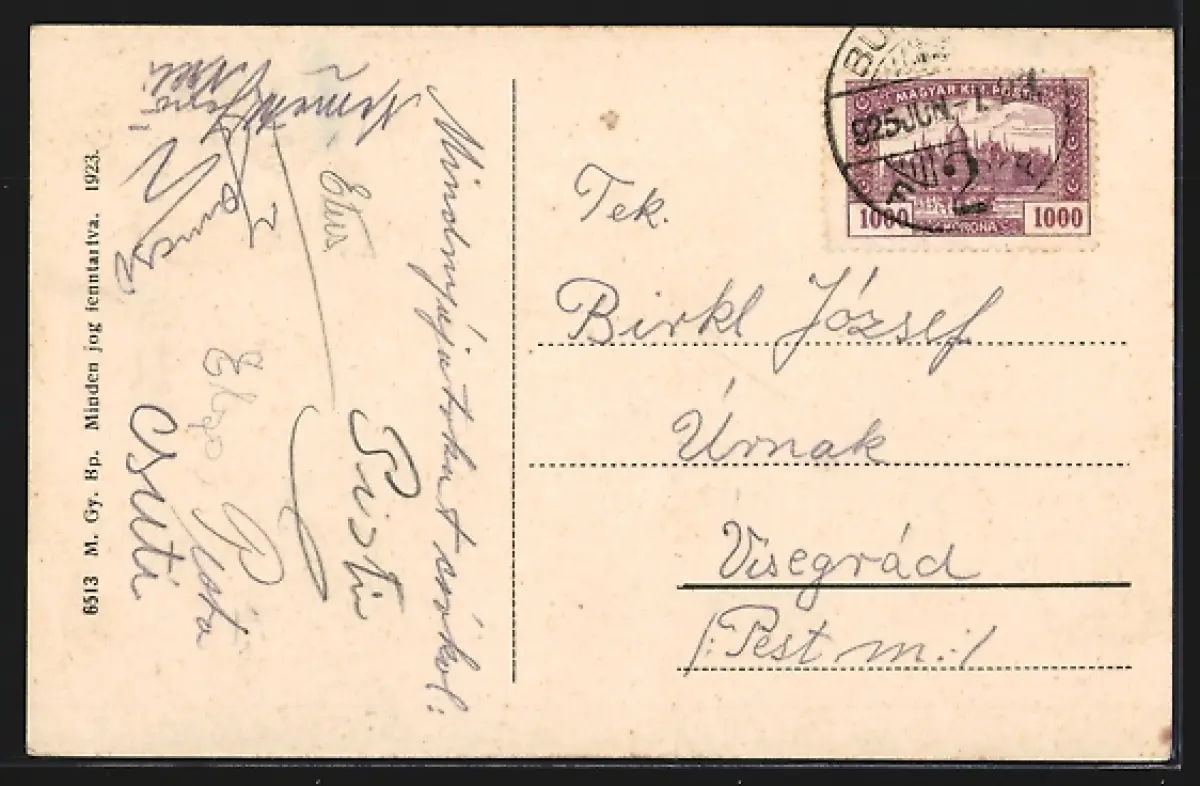 6513 M. Gy. Bp. Minden jog fenntartva. 1923.
Mindnyájatokat csókol:
Pisti
Etus
Pista
Csuti
BU
925 JUN.-
2
MAGYAR KIR. POSTA
1000 KORONA 1000
Tek.
Birkl József
Úrnak
Visegrád
/: Pest m :/